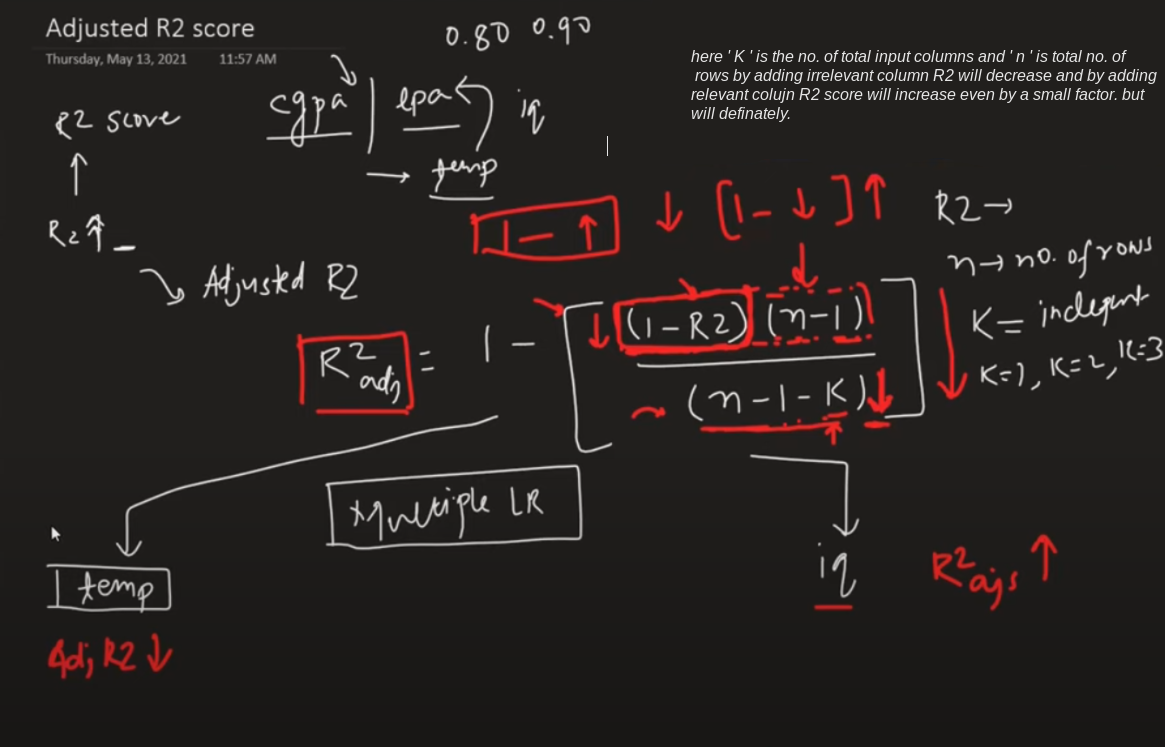 Adjusted R2 score
Thursday, May 13, 2021 11:57 AM
0.80 0.90
here ' K ' is the no. of total input columns and ' n ' is total no. of
rows by adding irrelevant column R2 will decrease and by adding
relevant colujn R2 score will increase even by a small factor. but
will definately.
cgpa | lpa iq
R2 score
→ temp
↑
1 - ↑ ↓ [1 - ↓] ↑ R2 →
R2 ↑
n → no. of rows
Adjusted R2
R²adj = 1 - [(1-R2)(n-1) / (n-1-K)]
K=1, K=2, K=3
Multiple LR
temp
iq
Adj R2 ↓